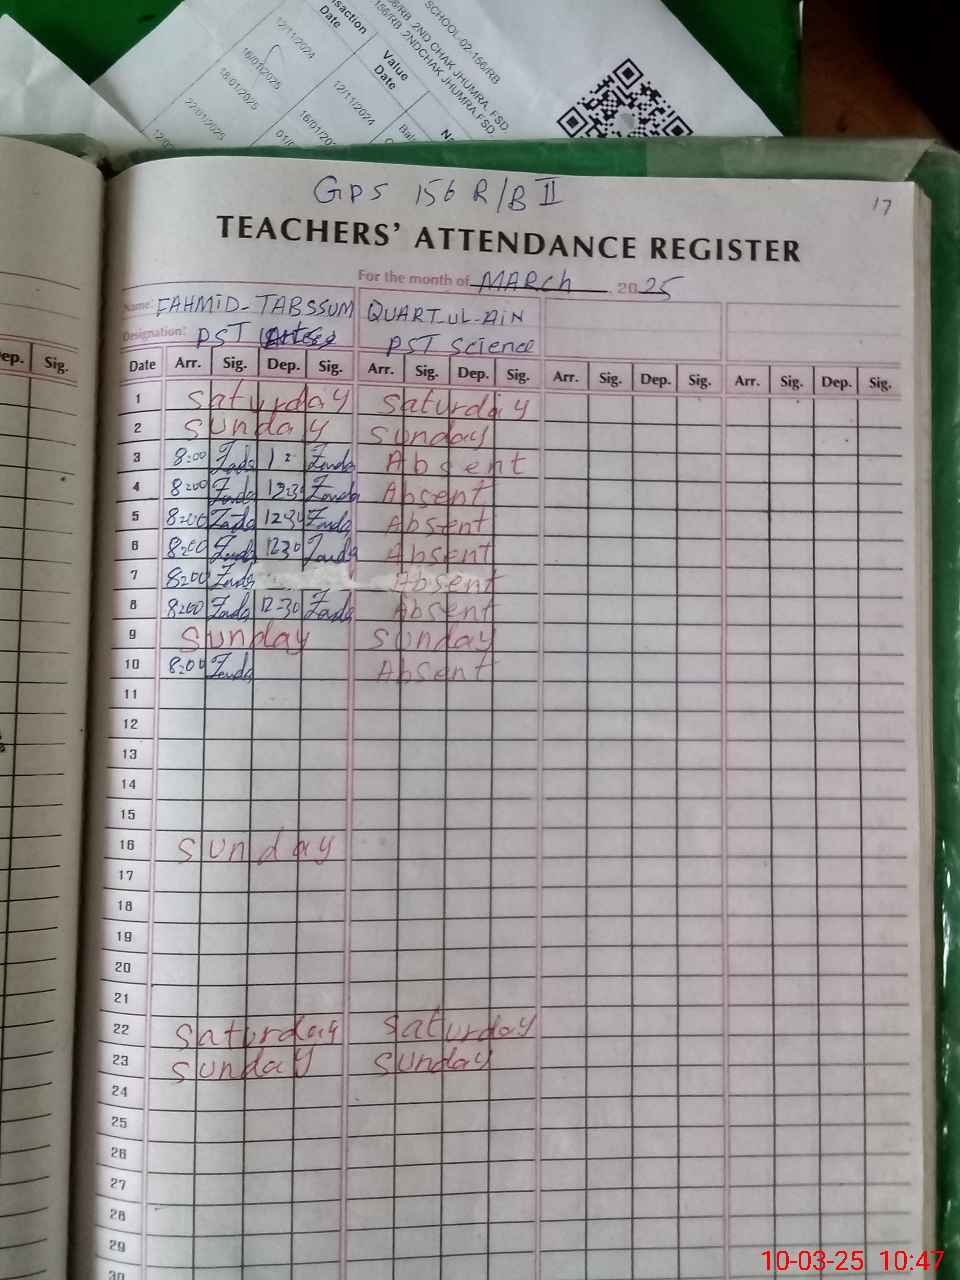 nsaction Date
Value Date
12/11/2024
16/01/2025
18/01/2025
22/01/2025
12/11/2024
SCHOOL-02-156/RB
156/RB .2ND CHAK JHUMRA, FSD.
156/RB .2NDCHAK JHUMRA,FSD.
GPS 156 R/B II
17
TEACHERS' ATTENDANCE REGISTER
For the month of MARCh 2025
Name: FAHMiD-TABSSUM QUART-UL-AiN
Designation: PST PST Science
ep. Sig. Date Arr. Sig. Dep. Sig. Arr. Sig. Dep. Sig. Arr. Sig. Dep. Sig. Arr. Sig. Dep. Sig.
1 Saturday Saturday
2 Sunday Sunday
3 8:00 Absent
4 8:00 12:30 Absent
5 8:00 12:30 Absent
6 8:00 1230 Absent
7 8:00 Absent
8 8:00 12-30 Absent
9 Sunday Sunday
10 8:00 Absent
11
12
13
14
15
16 Sunday
17
18
19
20
21
22 Saturday Saturday
23 Sunday Sunday
24
25
26
27
28
29
30
10-03-25 10:47